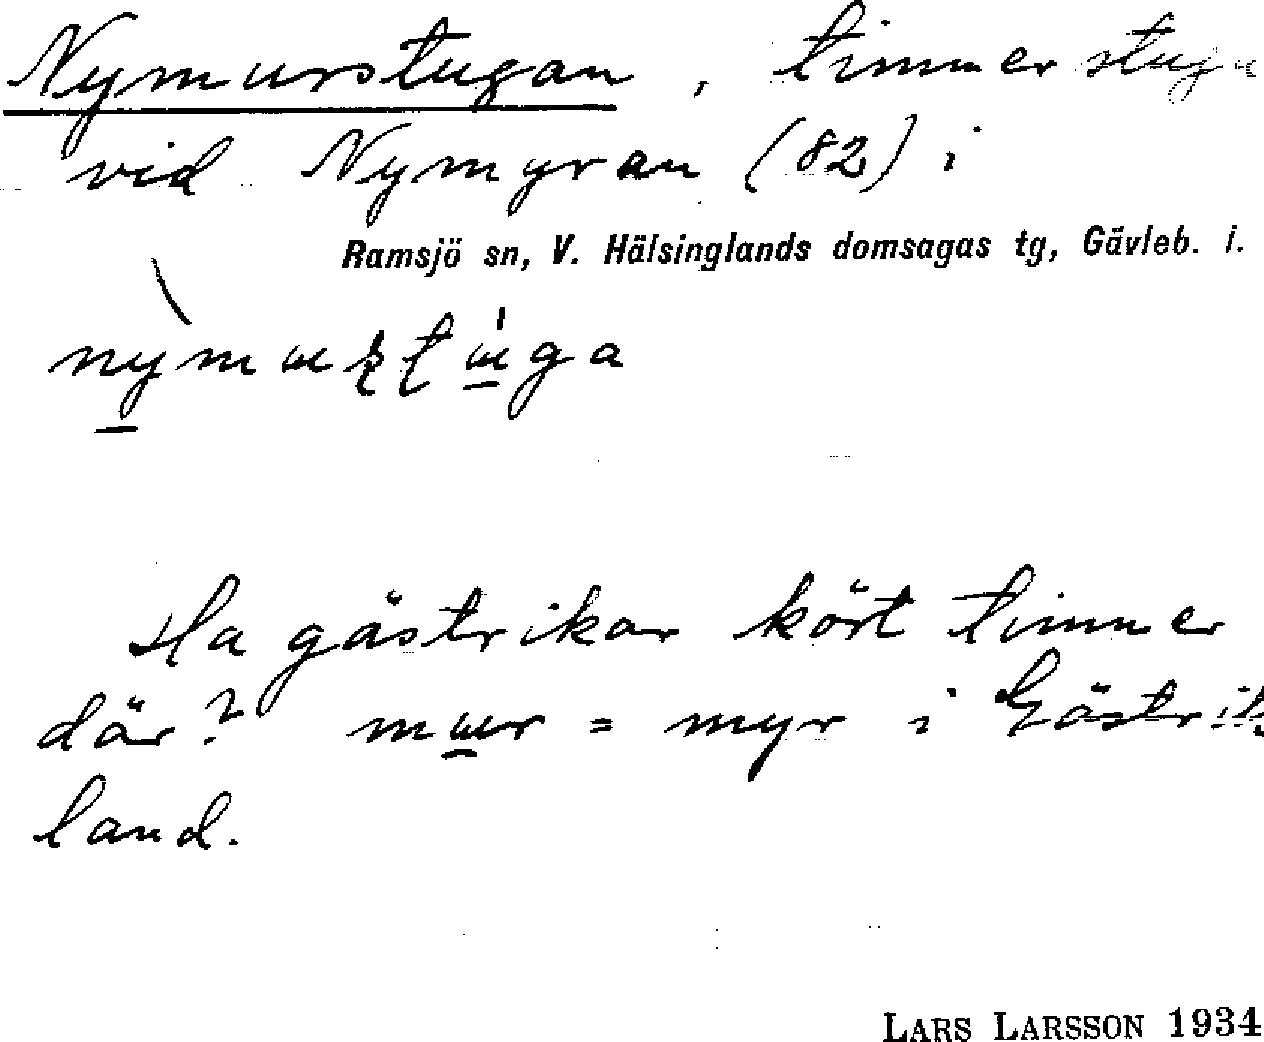 Nymurstugan, timmerstuga
vid Nymyran (82) i
Ramsjö sn, V. Hälsinglands domsagas tg, Gävleb. l.
Ha gästrikar kört timmer
där? mur = myr i Gästrik
land.
LARS LARSSON 1934